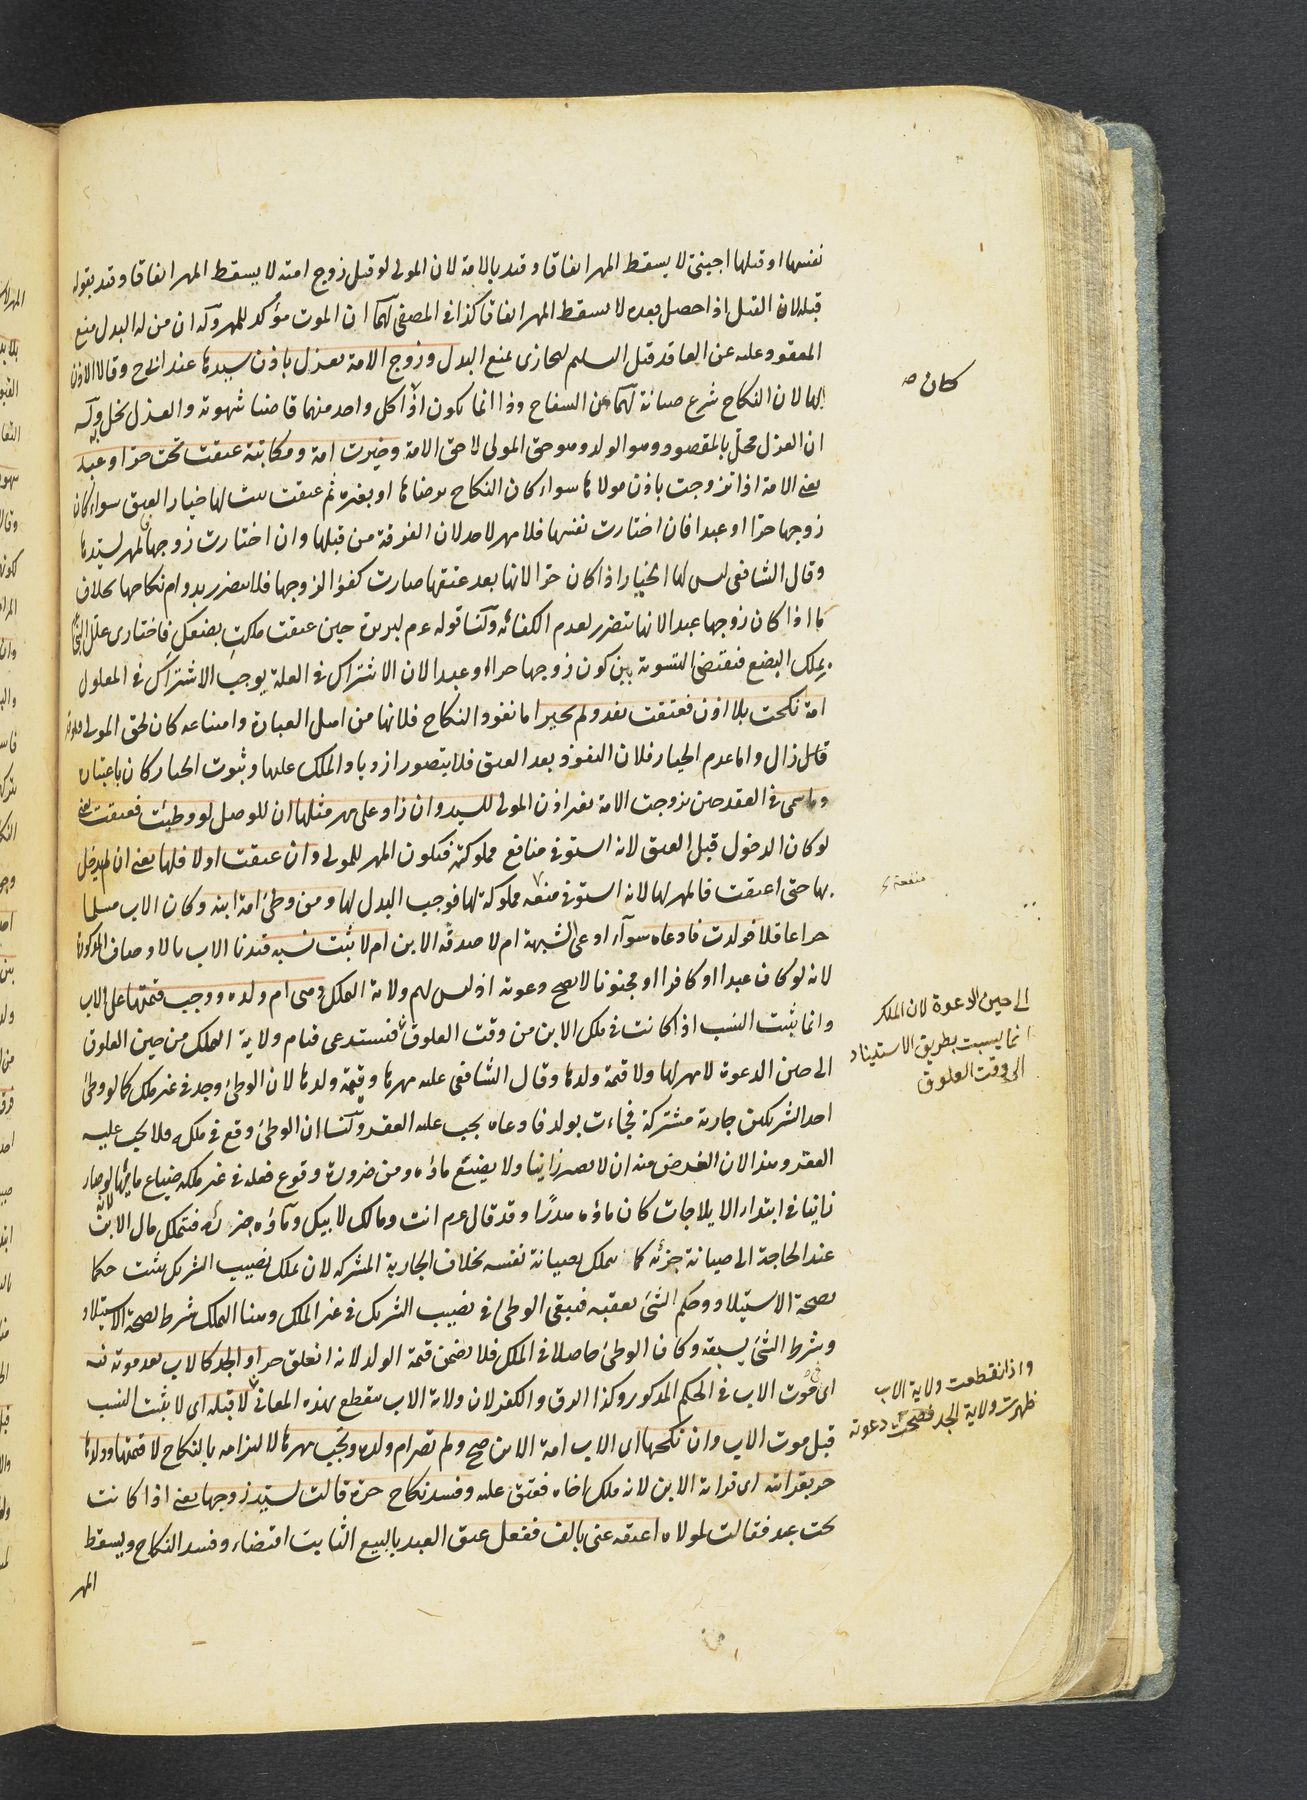 نفسها او قتلها اجنبي لا يسقط المهر اتفاقا وقيد بالامة لان المولى لو قتل زوج امته لا يسقط المهر اتفاقا وقيد بقوله
قبله لان القتل اذا حصل بعده لا يسقط المهر اتفاقا كذا في المصفى لهما ان الموت مؤكد للمهر وله ان من له البدل منع
المعقود عليه عن العاقد قبل التسليم ليجازى بمنع البدل وزوج الامة يعزل باذن سيدها عند ابي ح وقالا الاذن
اليها لان النكاح شرع صيانة لهما عن السفاح وذا انما يكون اذا كل واحد منهما قاضيا شهوته والعزل يخل وله
ان العزل مخل بالمقصود وهو الولد وهو حق المولى لا حق الامة وخيرت امة ومكاتبة عتقت تحت حر او عبد
يعني الامة اذا تزوجت باذن مولاها سواء كان النكاح برضاها او بغيره ثم عتقت يثبت لها خيار العتق سواء كان
زوجها حرا او عبدا فان اختارت نفسها فلا مهر لاحد لان الفرقة من قبلها وان اختارت زوجها فالمهر لسيدها
وقال الشافعي ليس لها الخيار اذا كان حرا لانها بعد عتقها صارت كفؤا لزوجها فلا تتضرر بدوام نكاحها بخلاف
ما اذا كان زوجها عبدا لانها تتضرر بعدم الكفائة ولنا قوله عم لبريرة حين عتقت ملكت بضعك فاختارى علل الخيار
بملك البضع فيقتضي التسوية بين كون زوجها حرا او عبدا لان الاشتراك في العلة يوجب الاشتراك في المعلول
امة نكحت بلا اذن فعتقت نفذ ولم يخير اما نفوذ النكاح فلانها من اهل العبارة وامتناعه كان لحق المولى وقد
زال واما عدم الخيار فلان النفوذ بعد العتق فلا يتصور ازدياد الملك عليها وثبوت الخيار كان باعتباره
وما سمى في العقد حين تزوجت الامة بغير اذن المولى للسيد وان زاد على مهر مثلها ان للوصل لو وطئت فعتقت يعني
لو كان الدخول قبل العتق لانه استوفى منافع مملوكته فيكون المهر للمولى وان عتقت اولا فلها يعني ان لم يدخل
بها حتى اعتقت فالمهر لها لانه استوفى منفعة مملوكة لها فوجب البدل لها ومن وطئ امة ابنه وكان الاب مسلما
حرا عاقلا فولدت فادعاه سوآء ادعى الشبهة ام لا صدقه الابن ام لا ثبت نسبه قيدنا الاب بالاوصاف المذكورة
لانه لو كان عبدا او كافرا او مجنونا لا يصح دعوته اذ ليس لهم ولاية التملك وهي ام ولده ووجب قيمتها على الاب
وانما يثبت النسب اذا كانت في ملك الابن من وقت العلوق فيستدعى قيام ولاية التملك من حين العلوق
الى حين الدعوة لا مهر لها ولا قيمة ولدها وقال الشافعي عليه مهرها وقيمة ولدها لان الوطئ وجد في غير ملك كما لو وطئ
احد الشريكين جارية مشتركة فجاءت بولد فادعاه يجب عليه العقر ولنا ان الوطئ وقع في ملكه فلا يجب عليه
العقر وهذا لان الغرض منه ان لا يصير زانيا ولا يضيع ماؤه ومن ضرورة وقوع فعله في غير ملكه ضياع مائه لو صار
زانيا في ابتداء الايلاجات كان ماؤه مهدرا وقد قال عم انت ومالك لابيك وماؤه جزؤه فيتملك مال الابن
عند الحاجة الى صيانة جزئه كما يتملك لصيانة نفسه بخلاف الجارية المشتركة لان تملك نصيب الشريك يثبت حكما
لصحة الاستيلاد وحكم الشئ يعقبه فيبقى الوطئ في نصيب الشريك في غير الملك وهنا التملك شرط لصحة الاستيلاد
وشرط الشئ يسبقه وكان الوطئ حاصلا في الملك فلا يضمن قيمة الولد لانه انعلق حرا والجد كالاب بعد موته فيه
اى في موت الاب في الحكم المذكور وكذا الرق والكفر لان ولاية الاب ينقطع بهذه المعاني لا قبله اى لا يثبت النسب
قبل موت الاب وان نكحها اى الاب امة الابن صح ولم تصر ام ولده ويجب مهرها لالتزامه بالنكاح لا قيمتها وولدها
حر بقرابته اى قرابة الابن لانه ملك اخاه فعتق عليه وفسد نكاح حرة قالت لسيد زوجها يعني اذا كانت
تحت عبد فقالت لمولاه اعتقه عني بالف ففعل عتق العبد بالبيع الثابت اقتضاء وفسد النكاح ويسقط
المهر
كان صح
منفعة
الى حين الدعوة لان الملك
انما يثبت بطريق الاستناد
الى وقت العلوق
واذا انقطعت ولاية الاب
ظهرت ولاية الجد فصحت دعوته